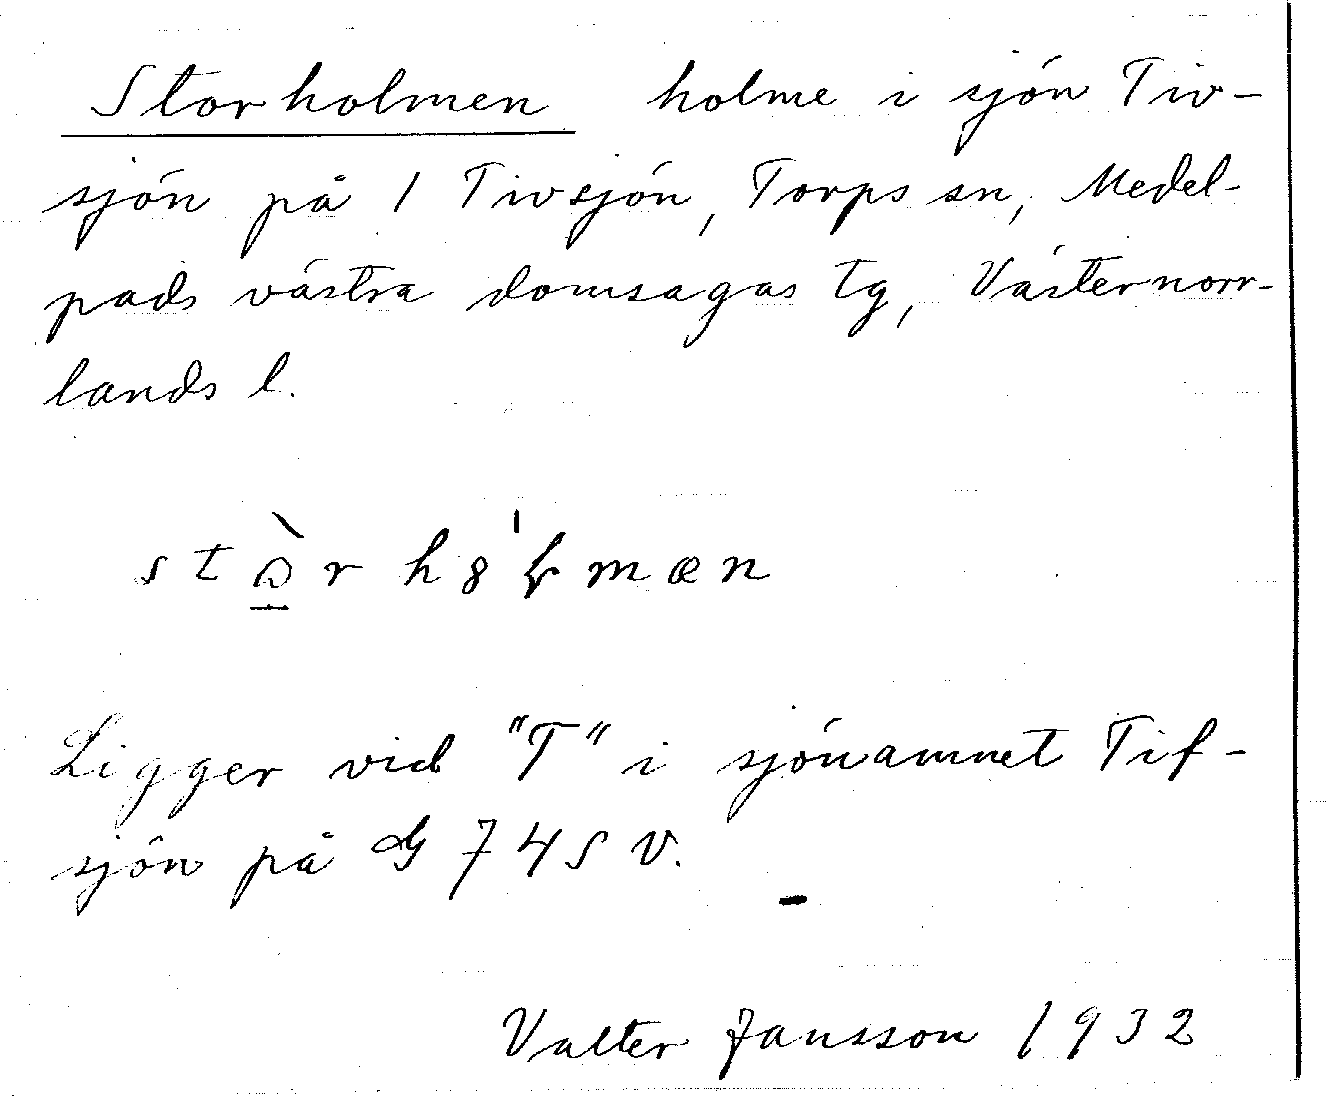 Storholmen holme i sjön Tiv-
sjön på 1 Tivsjön, Torps sn, Medel-
pads västra domsagas tg, Västernorr-
lands l.
Ligger vid "T" i sjönamnet Tif-
sjön på G 74 S V.
Valter Jansson 1932